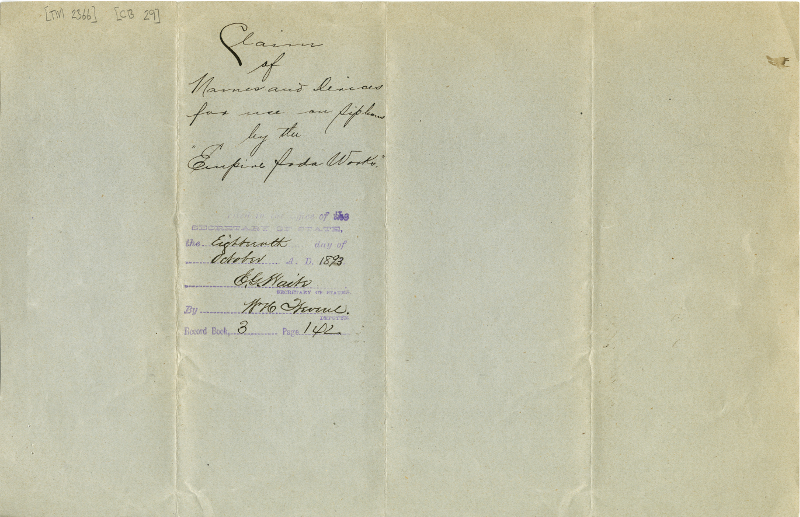 [TM 2366] [CB 29]
Claim
of
Names and Devices
for use on Siphons
by the
"Empire Soda Works."
of the
SECRETARY OF STATE,
the Eighteenth day of
October A. D. 1893
E. G. Waite
SECRETARY OF STATE.
By W. H.
DEPUTY.
Record Book, 3 Page 142